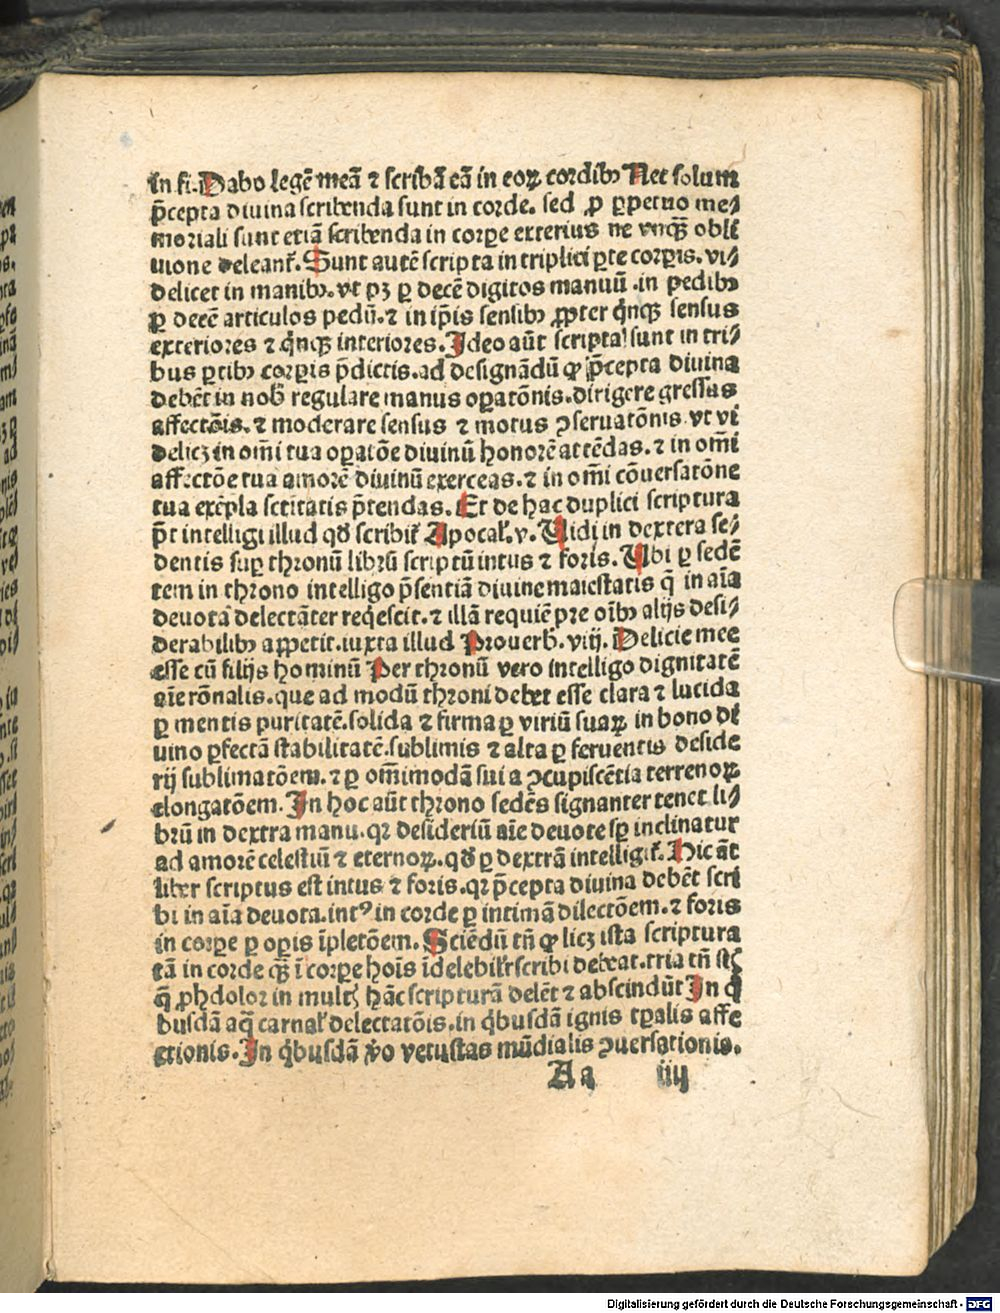 in fi. Dabo legē meā ⁊ scribā eā in eoꝝ cordibꝰ Nec solum
p̄cepta diuina scribenda sunt in corde. sed ꝓ ꝑpetuo me⸗
moriali sunt etiā scribenda in corpe exterius ne vnqꝫ obli
uione deleant̄. Sunt autē scripta in triplici ꝑte corꝑis. vi⸗
delicet in manibꝰ. vt pꝫ ꝑ decē digitos manuū. in pedibꝰ
ꝑ decē articulos pedū. ⁊ in ip̄is sensibꝰ ꝓpter q̇nqꝫ sensus
exteriores ⁊ q̇nqꝫ interiores. Ideo aūt scripta sunt in tri⸗
bus ꝑtibꝰ corꝑis p̄dictis. ad designādū ꝙ p̄cepta diuina
debēt in nob̄ regulare manus oꝑatōnis. dirigere gressus
affectōis. ⁊ moderare sensus ⁊ motus ꝯseruatōnis vt vi
delicꝫ in om̄i tua oꝑatōe diuinū honorē attēdas. ⁊ in om̄i
affectōe tua amorē diuinū exerceas. ⁊ in om̄i cōuersatōne
tua exēpla sctitatis p̄tendas. Et de hac duplici scriptura
p̄t intelligi illud qđ scribit̄ Apocal̄. v. Uidi in dextera se⸗
dentis suꝑ thronū librū scriptū intus ⁊ foris. Ubi ꝑ sedē
tem in throno intelligo p̄sentiā diuine maiestatis q̄ in aīa
deuota delectāter reqͥescit. ⁊ illā requiē pre oībꝰ alijs desi⸗
derabilibꝰ appetit. iuxta illud Prouerb̄. viij. Delicie mee
esse cū filijs hominū Per thronū vero intelligo dignitatē
aīe rōnalis. que ad modū throni debet esse clara ⁊ lucida
ꝑ mentis puritatē. solida ⁊ firma ꝑ viriū suaꝝ in bono di
uino ꝑfectā stabilitatē. sublimis ⁊ alta ꝑ feruentis deside
rij sublimatōem. ⁊ ꝑ om̄imodā sui a ꝯcupiscētia terrenoꝝ
elongatōem. In hoc aūt throno sedēs signanter tenet li⸗
brū in dextra manu. qꝛ desideriū aīe deuote sꝑ inclinatur
ad amorē celestiū ⁊ eternoꝝ. qđ ꝑ dextrā intelligit̄. Hic āt
liber scriptus est intus ⁊ foris. qꝛ p̄cepta diuina debēt scri
bi in aīa deuota. intꝰ in corde ꝑ intimā dilectōem. ⁊ foris
in corpe ꝑ oꝑis īpletōem. Sciēdū tn̄ ꝙ licꝫ ista scriptura
tā in corde qꝫ̄ ī corpe hoīs īdelebil̄r scribi debeat. tria tn̄ st̄
q̄ ꝓhdolor in mult hāc scripturā delēt ⁊ abscindūt In q̇
busdā aq̄ carnal̄ delectatōis. in q̇busdā ignis tꝑalis affe
ctionis. In q̇busdā v̄o vetustas mūdialis ꝯuersationis.
Aa iiij
Digitalisierung gefördert durch die Deutsche Forschungsgemeinschaft - DFG